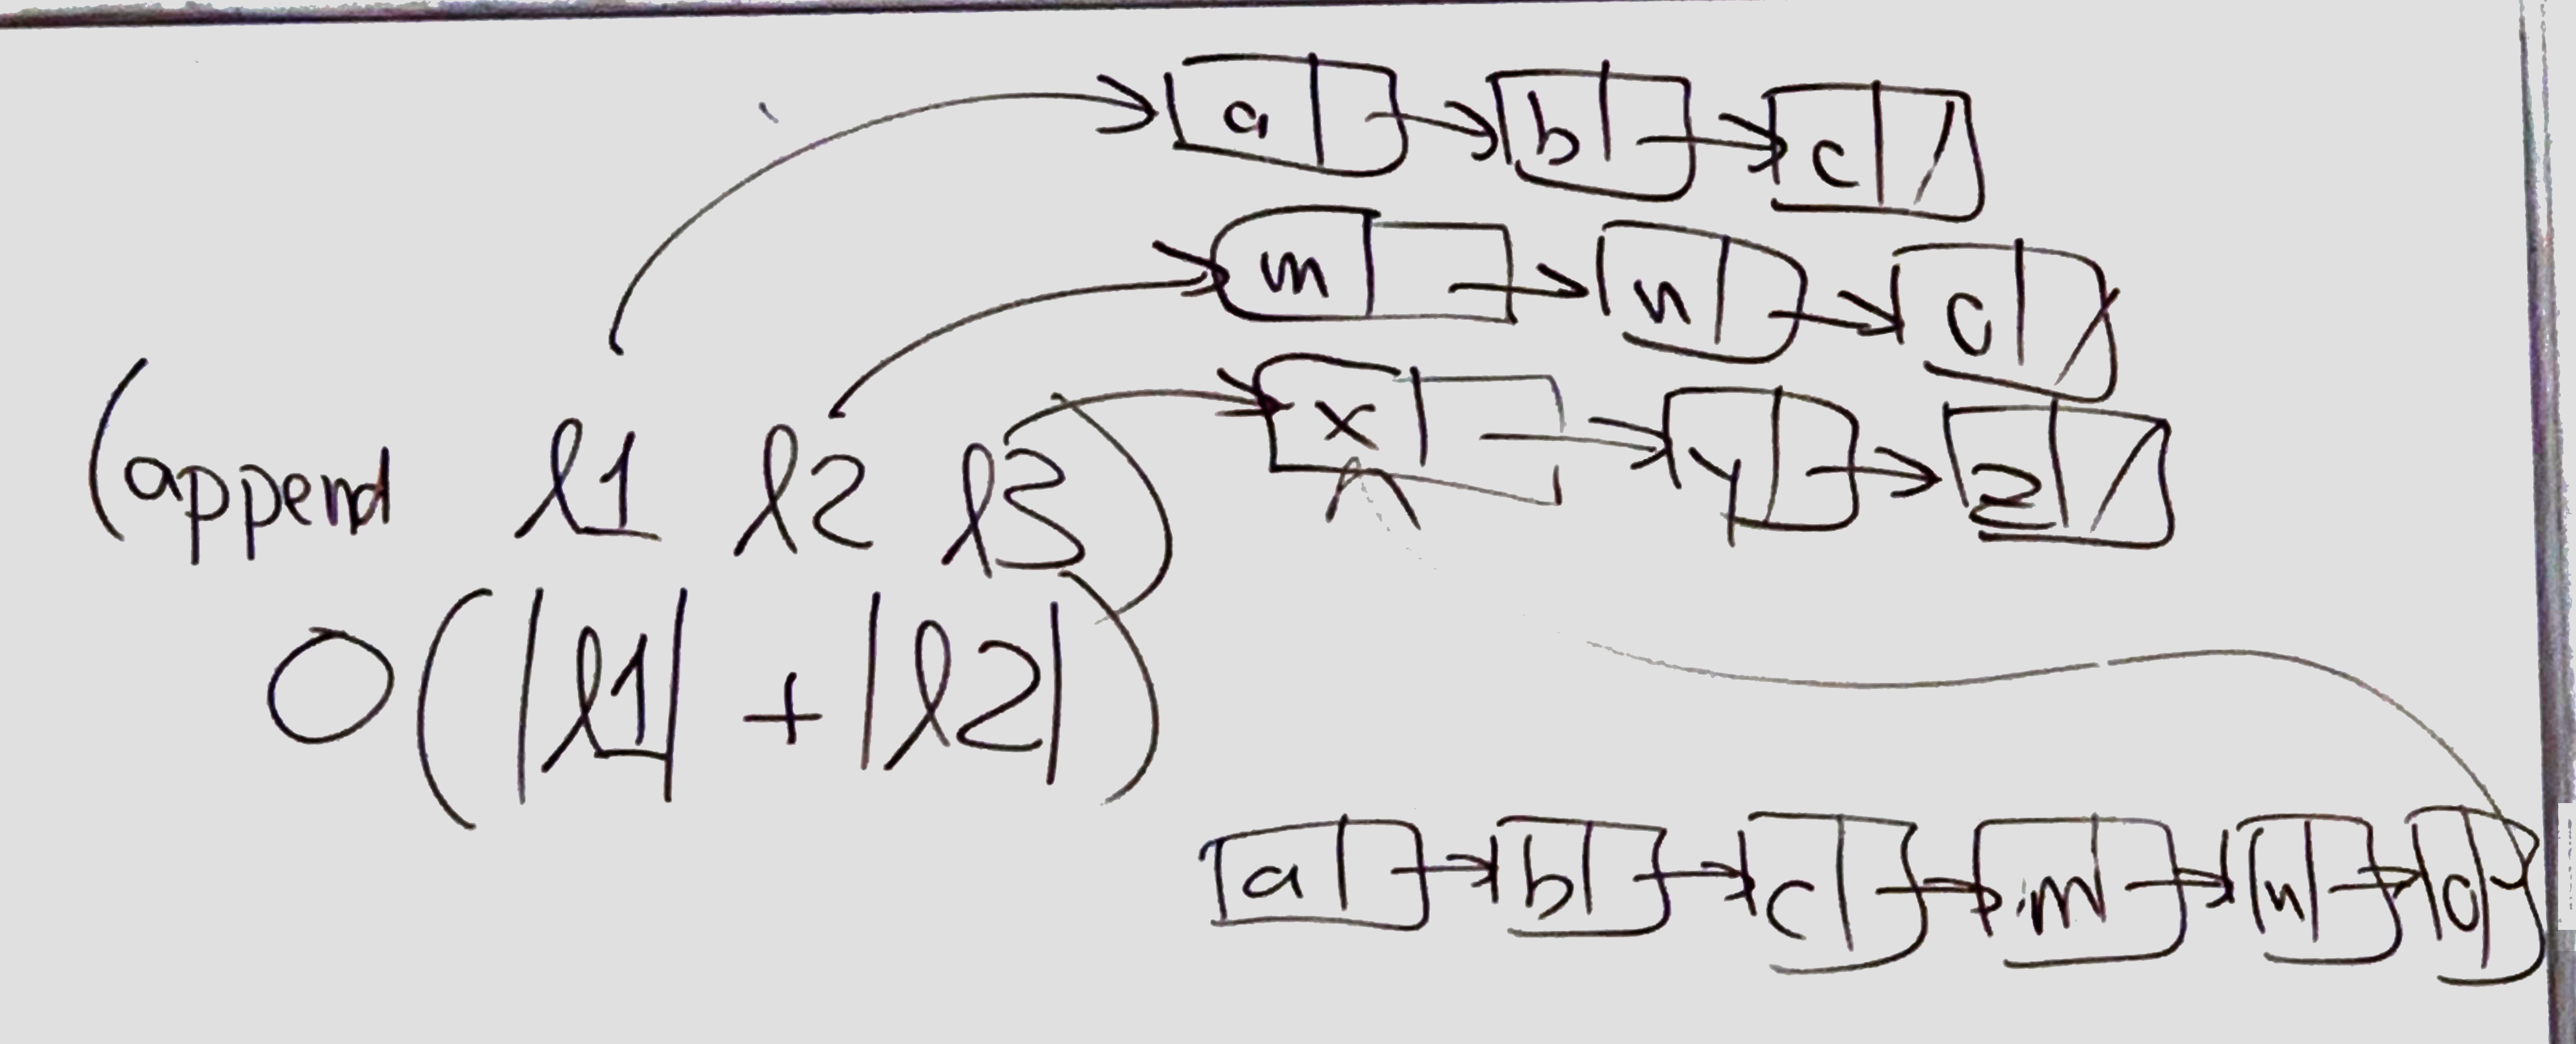 a b c /
m n o /
x y z /
(append l1 l2 l3)
O(|l1| + |l2|)
a b c m n o